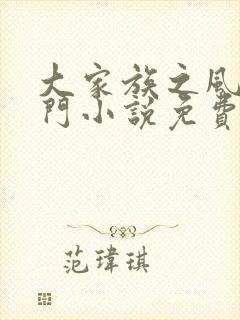 大家族之風
門小說免費
范瑋琪